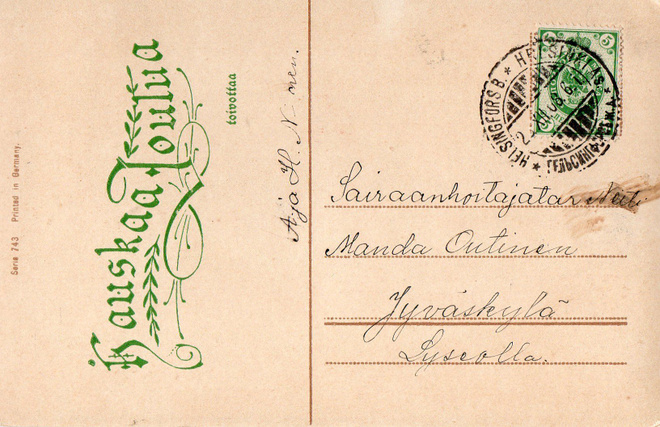 Serie 743 Printed in Germany.
Hauskaa Joulua
toivottaa
Aja H. N nen.
5 5
HELSINGFORS B. * HELSINKI *
ГЕЛЬСИНГФОРСЪ
Sairaanhoitajatar Neiti
Manda Outinen
Jyväskylä
Lyseolla.